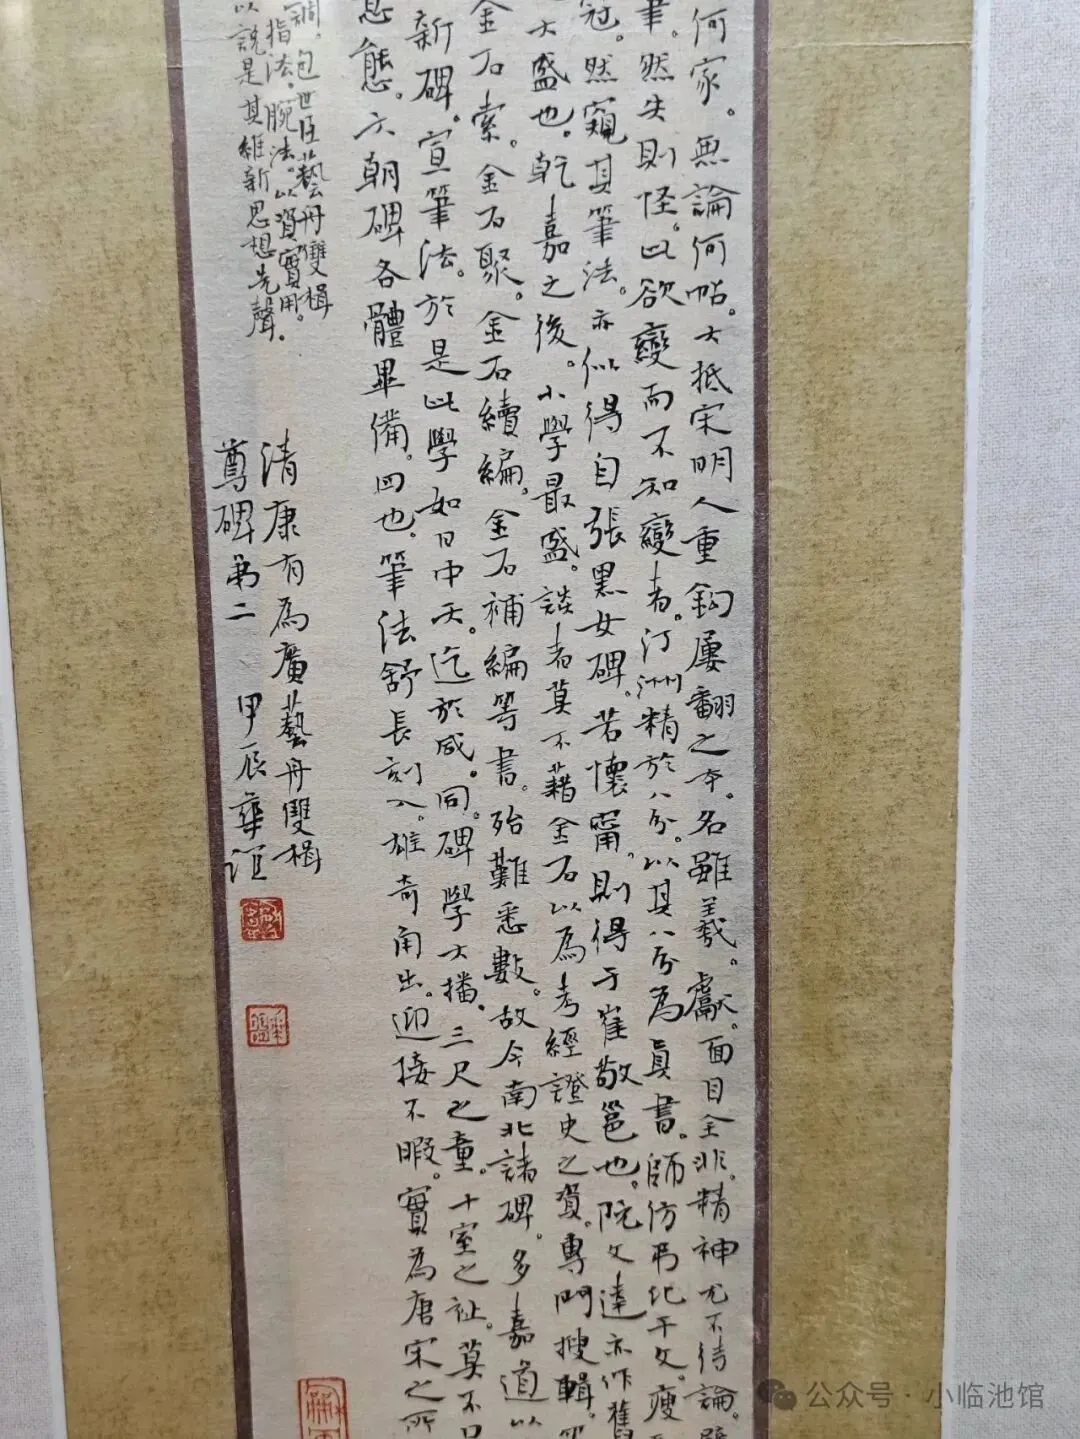 何家。無論何帖。大抵宋明人重鈎屢翻之本。名雖羲。獻。面目全非。精神尤不待論。
筆。然失則怪。此欲變而不知變者。汀洲精於八分。以其八分為眞書。師仿弔比干文。瘦
冠。然窺其筆法。亦似得自張黑女碑。若懷甯。則得于崔敬邕也。阮文達亦作舊
大盛也。乾嘉之後。小學最盛。談者莫不藉金石以為考經證史之資。專門搜輯。
金石索。金石聚。金石續編。金石補編等書。殆難悉數。故今南北諸碑。多嘉道以
新碑。宣筆法。於是此學如日中天。迄於咸。同。碑學大播。三尺之童。十室之社。莫不口
意態。六朝碑各體畢備。四也。筆法舒長刻入。雄奇角出。迎接不暇。實為唐宋之所
調。包世臣藝舟雙楫
指法。腕法。以資實用。
以說是其維新思想先聲。
清康有為廣藝舟雙楫
尊碑第二 甲辰龔誼
公众号·小临池馆